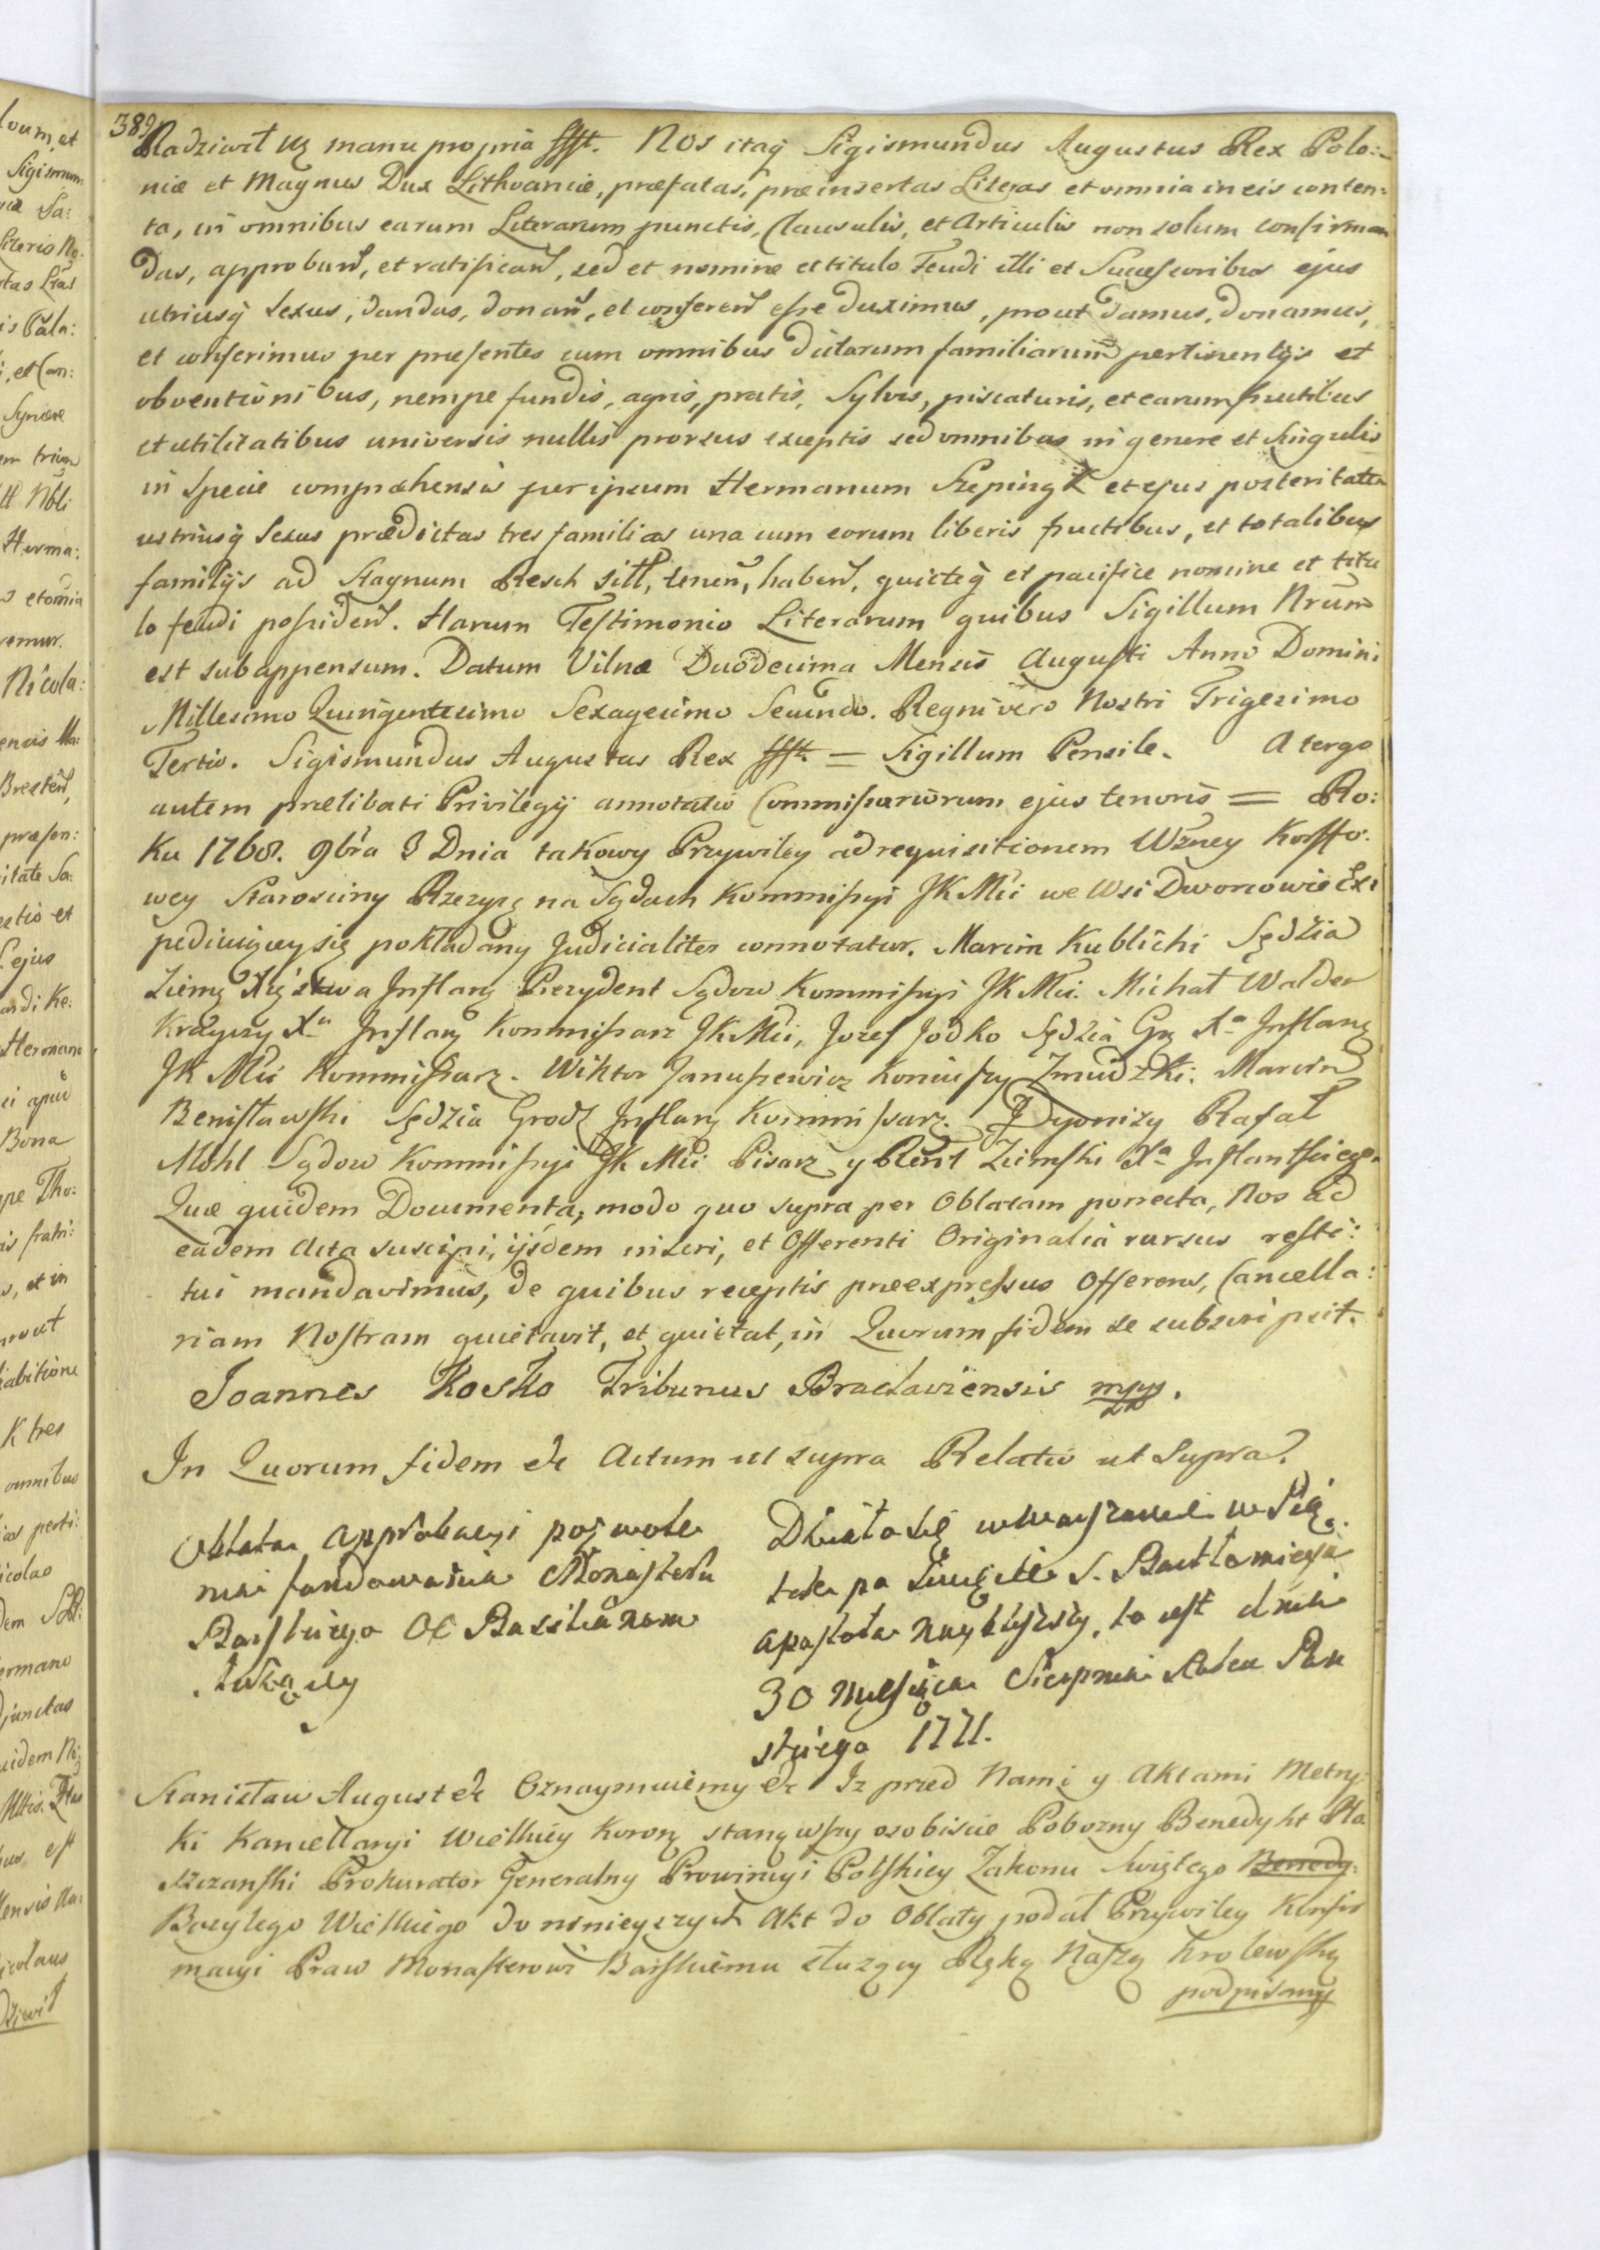 389
Radziwił mą manu propria sst. Nos itaq̃ Sigismundus Augustus Rex Polo:
niæ et Magnus Dux Lithvaniæ, præfatas, præinsertas Literas et omnia in eis conten:
ta, in omnibus earum Literarum punctis, Clausulis, et Articulis non solum confirman
das, approban̄, et ratifican̄, sed et nomine et titulo Feudi illi et Successoribus ejus
utriusq̃ Sexus, dandas, donan̄, et conferen̄ esse duximus, prout damus, donamus,
et conferimus per præsentes cum omnibus dictarum familiarum pertinentijs et
obventionibus, nempe fundis, agris, pratis, Sylvis, piscaturis, et earum fructibus
et utilitatibus universis nullis prorsus exceptis sed omnibus in genere et Singulis
in Specie comprehensis per ipsum Hermanum Szepingk et ejus posteritatem
ustriusq̃ Sexus prædictas tres familias una cum eorum liberis fructibus, et totalibus
familijs ad Stagnum Resch sitt, tenen̄, haben̄, quieteq̃ et pacifice nomine et titu
lo feudi possiden̄. Harum Testimonio Literarum quibus Sigillum Nrum
est subappensum. Datum Vilnæ Duodecima Mensis Augusti Anno Domini
Millesimo Quingentesimo Sexagesimo Secundo. Regni vero Nostri Trigesimo
Tertio. Sigismundus Augustus Rex sst = Sigillum Pensile. A tergo
autem prælibati Privilegij annotatio Commissariorum ejus tenoris = Ro:
ku 1768. 9bra 3 Dnia takowy Przywiley ad requisitionem Wżney Korffo:
wey Starosciny Rzeżyck na Sądach Kommissyi JKMci we Wsi Dworcowie Ex:
pediuiącey się pokładany Judicialiter connotatur. Marcin Kublicki Sędzia
Ziem Xięstwa Inflan Prezydent Sądow Kommissyi JKMci. Michał Walder
Krayczy Xa Inflan Kommissarz JKMci, Jozef Jodko Sędzia Gr Xa Inflan
JKMci Kommissarz. Wiktor Januszewicz Koniuszy Zmudzki. Marcin
Benisławski Sędzia Grodz Inflan Kommissarz. Dyonizy Rafał
Mohl Sądow Kommissyi JKMci Pisarz y Rent Ziemski Xa Inflantskiego.
Quæ quidem Documenta, modo quo supra per Oblatam porrecta, Nos ad
eadem Acta suscipi, ijsdem inseri, et Offerenti Originalia rursus resti:
tui mandavimus, de quibus receptis præexpressus Offerens, Cancella:
riam Nostram quietavit, et quietat, in Quorum fidem se subscripsit.
Joannes Kosko Tribunus Braclaviensis mpp.
In Quorum fidem &c Actum ut supra Relatio ut Supra.
Oblata Approbacyi pozwole
nia fundowania Monasteru
Barskiego OO Bassilianom
służący
Działo się w Warszawie w Pią
tek po Święcie S. Bartłomieja
Apostoła naybliższy, to iest dnia
30 Miesiąca Sierpnia Roku Pań
skiego 1771.
Stanisław August &c Oznaymuiemy &c Iz przed Nami y Aktami Metry
ki Kancellaryi Wielkiey Koron stanąwszy osobiscie Pobozny Benedykt Ma
szczanski Prokurator Generalny Prowincyi Polskiey Zakonu Swiętego Benedy:
Bazylego Wielkiego do ninieyszych Akt do Oblaty podał Przywiley Konfir
macyi Praw Monasterowi Barskiemu służący Ręką Naszą Krolewską
podpisany